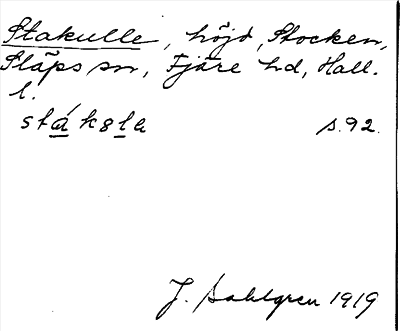 Stakulle, höjd, Stocken,
Släps sn, Fjäre hd, Hall.
l.
sták8la s. 92.
J. Sahlgren 1919